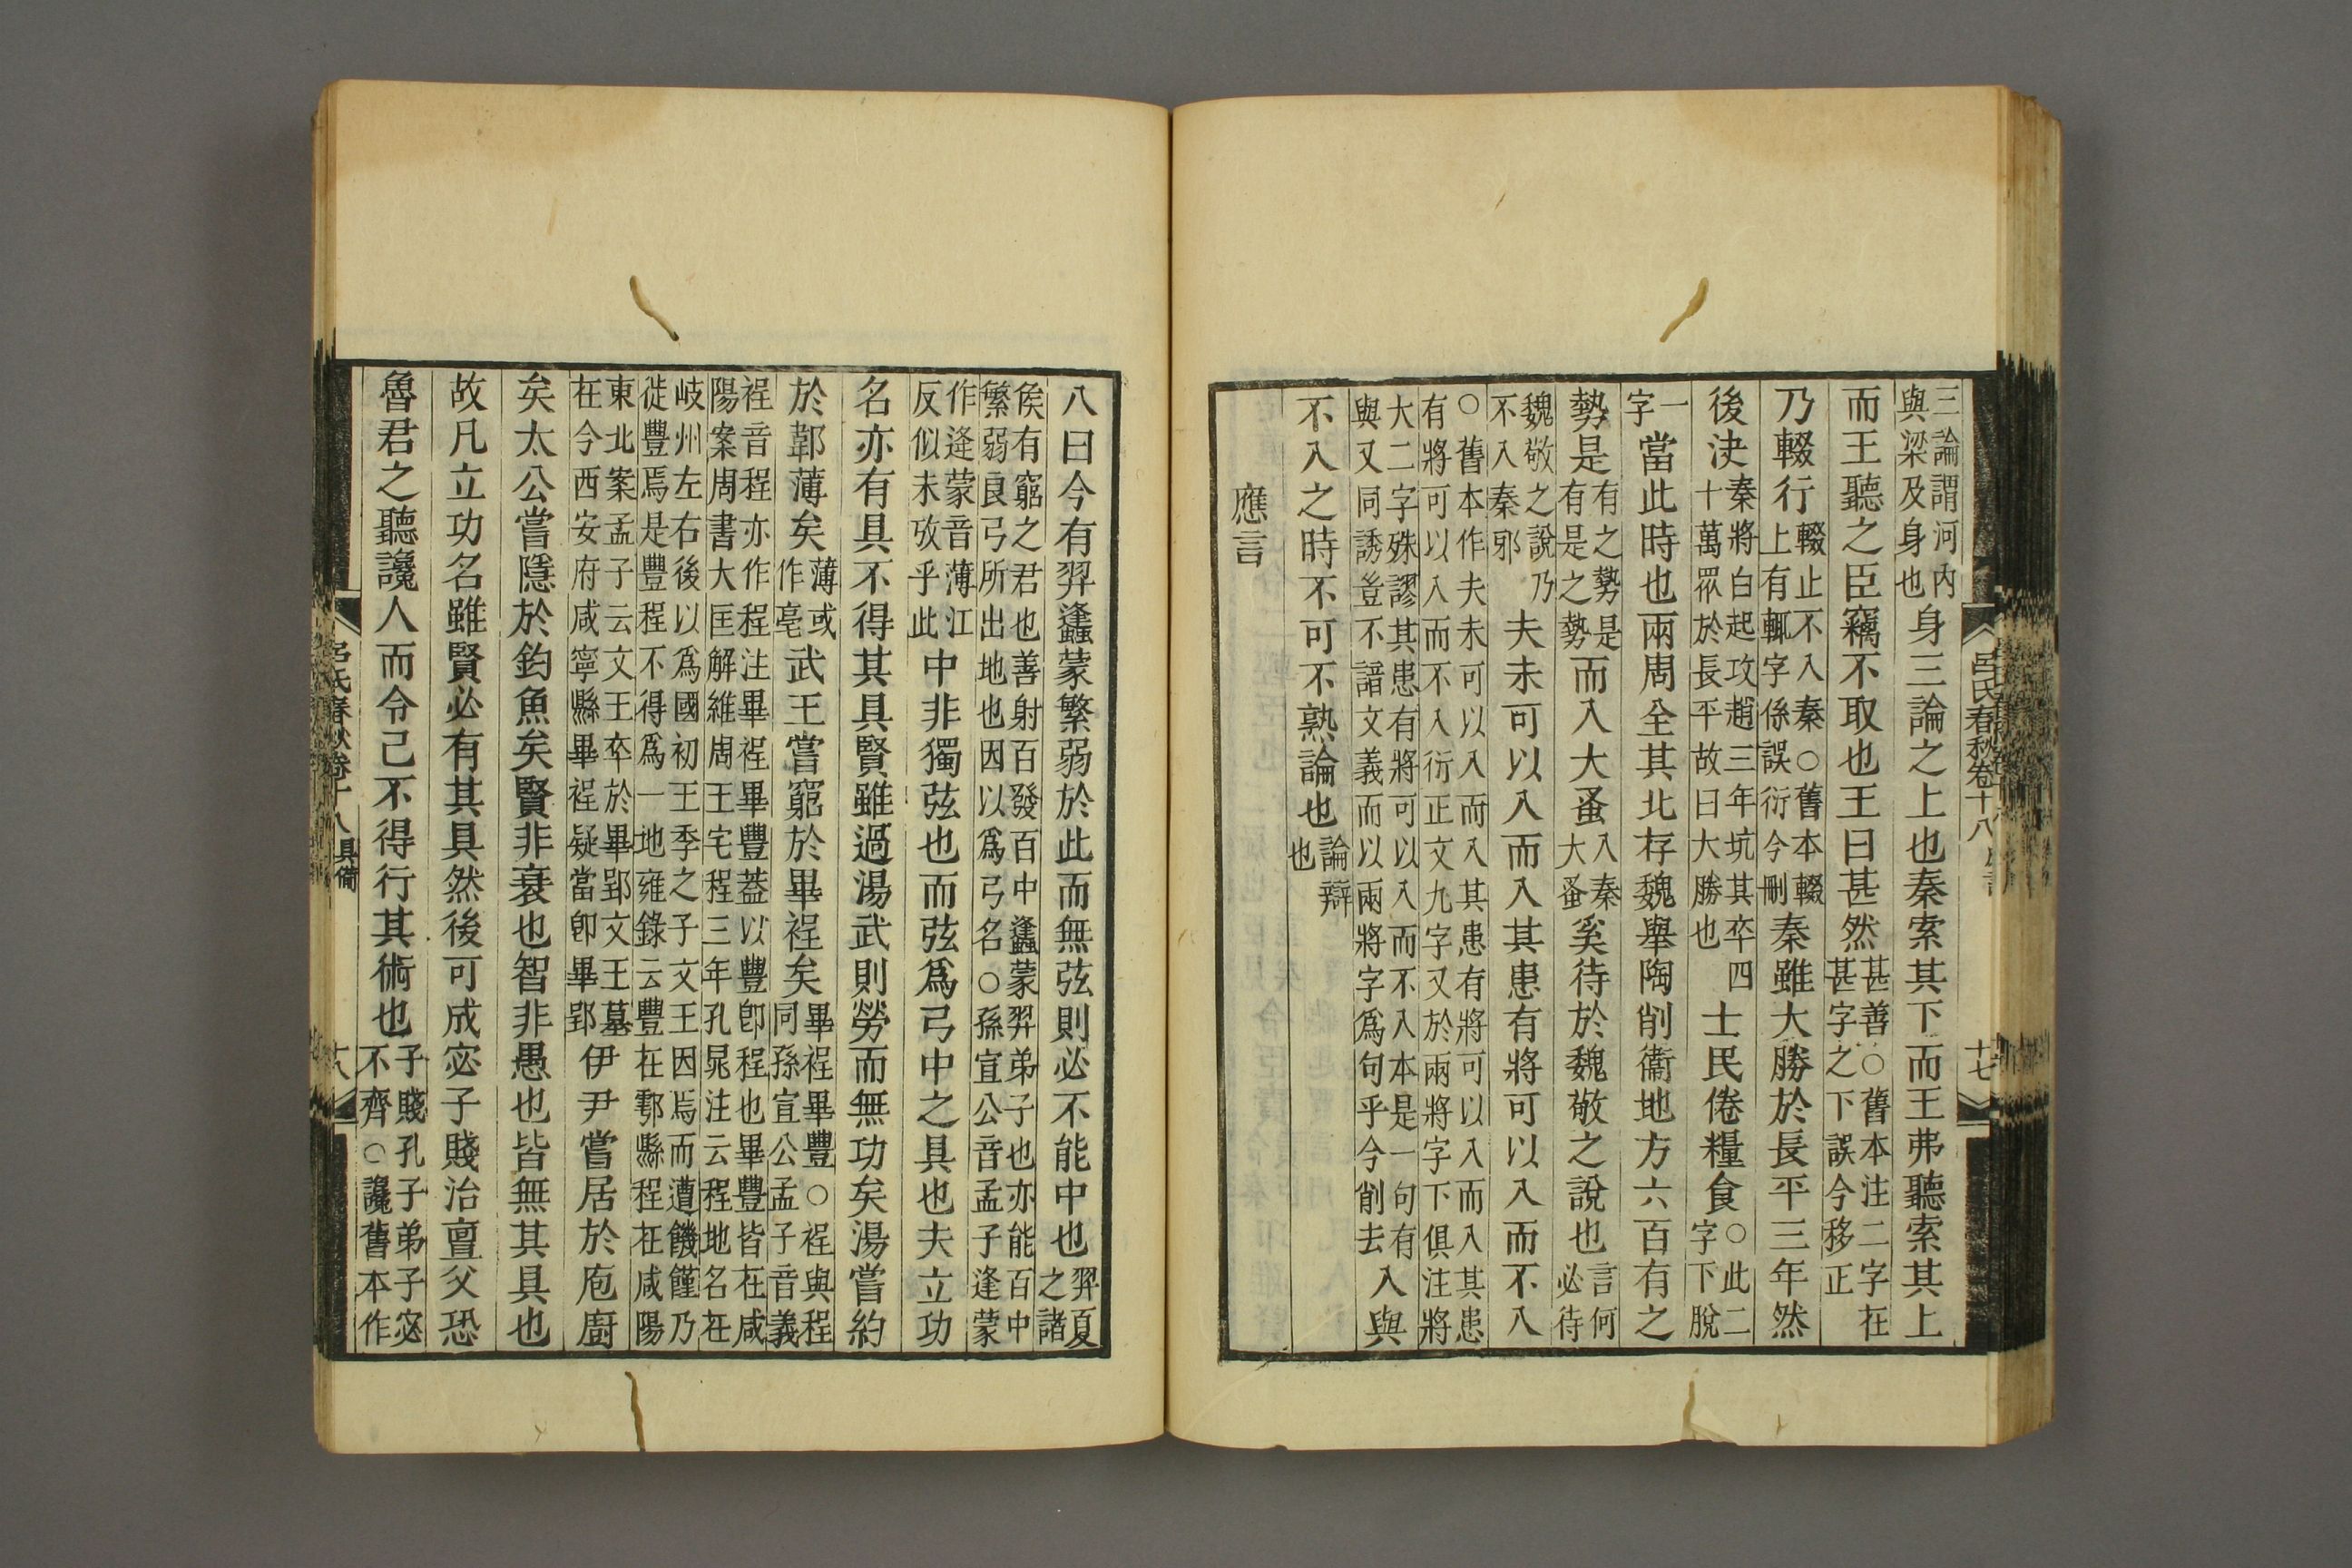 三論謂河內與梁及身也身三論之上也秦索其下而王弗聽索其上
而王聽之臣竊不取也王曰甚然甚善○舊本注二字在甚字之下誤今移正
乃輟行輟止不入秦○舊本輟上有輒字係誤衍今刪秦雖大勝於長平三年然
後決秦將白起攻趙三年坑其卒四十萬眾於長平故曰大勝也士民倦糧食○此二字下脫
一字當此時也兩周全其北存魏舉陶削衞地方六百有之
勢是有之勢是有是之勢而入大蚤入秦大蚤奚待於魏敬之說也言何必待
魏敬之說乃不入秦邪夫未可以入而入其患有將可以入而不入
○舊本作夫未可以入而入其患有將可以入而入其患有將可以入而不入衍正文九字又於兩將字下俱注將
大二字殊謬其患有將可以入而不入本是一句有與又同誘豈不諳文義而以兩將字爲句乎今削去入與
不入之時不可不熟論也論辯也
應言
呂氏春秋卷十八
十七
八曰今有羿蠭蒙繁弱於此而無弦則必不能中也羿夏之諸
侯有窮之君也善射百發百中蠭蒙羿弟子也亦能百中繁弱良弓所出地也因以爲弓名○孫宣公音孟子逢蒙
作逄蒙音薄江反似未攷乎此中非獨弦也而弦爲弓中之具也夫立功
名亦有具不得其具賢雖過湯武則勞而無功矣湯嘗約
於鄣薄矣薄或作亳武王嘗窮於畢裎矣畢裎畢豐○裎與程同孫宣公孟子音義
裎音程亦作程注畢裎畢豐蓋以豐卽程也畢豐皆在咸陽案周書大匡解維周王宅程三年孔晁注云程地名在
岐州左右後以爲國初王季之子文王因焉而遭饑饉乃徙豐焉是豐程不得爲一地雍錄云豐在鄠縣程在咸陽
東北案孟子云文王卒於畢郢文王墓在今西安府咸寧縣畢裎疑當卽畢郢伊尹嘗居於庖廚
矣太公嘗隱於釣魚矣賢非衰也智非愚也皆無其具也
故凡立功名雖賢必有其具然後可成宓子賤治亶父恐
魯君之聽讒人而令己不得行其術也子賤孔子弟子宓不齊○讒舊本作
呂氏春秋卷十八 具備
十八